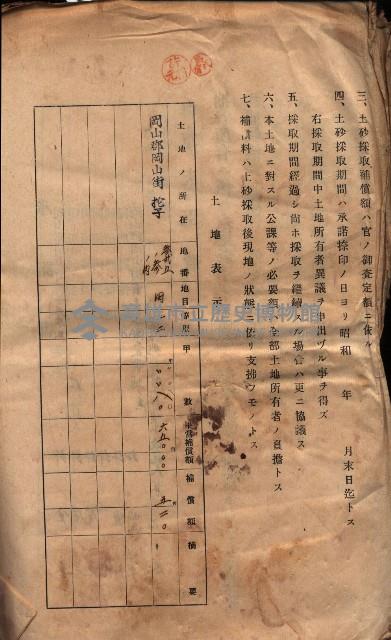 三、土砂採取補償額ハ官ノ御査定額ニ依ル
四、土砂採取期間ハ承諾捺印ノ日ヨリ昭和　年　月末日迄トス
右採取期間中土地所有者異議ヲ申出ヅル事ヲ得ズ
五、採取期間經過シ尚ホ採取ヲ繼續スル場合ハ更ニ協議ス
六、本土地ニ對スル公課等ノ必要額ハ全部土地所有者ノ負擔トス
七、補償料ハ土砂採取後現地ノ狀態ニ依リ支拂フモノトス
土地表示
土地ノ所在　地番　地目　等則　甲數　補償額　補償額　摘要
岡山郡岡山街
高雄市立歷史博物館